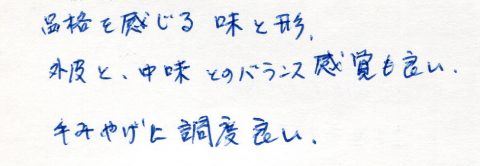 品格を感じる 味と形.
外皮と、中味とのバランス感覚も良い.
手みやげに調度良い.